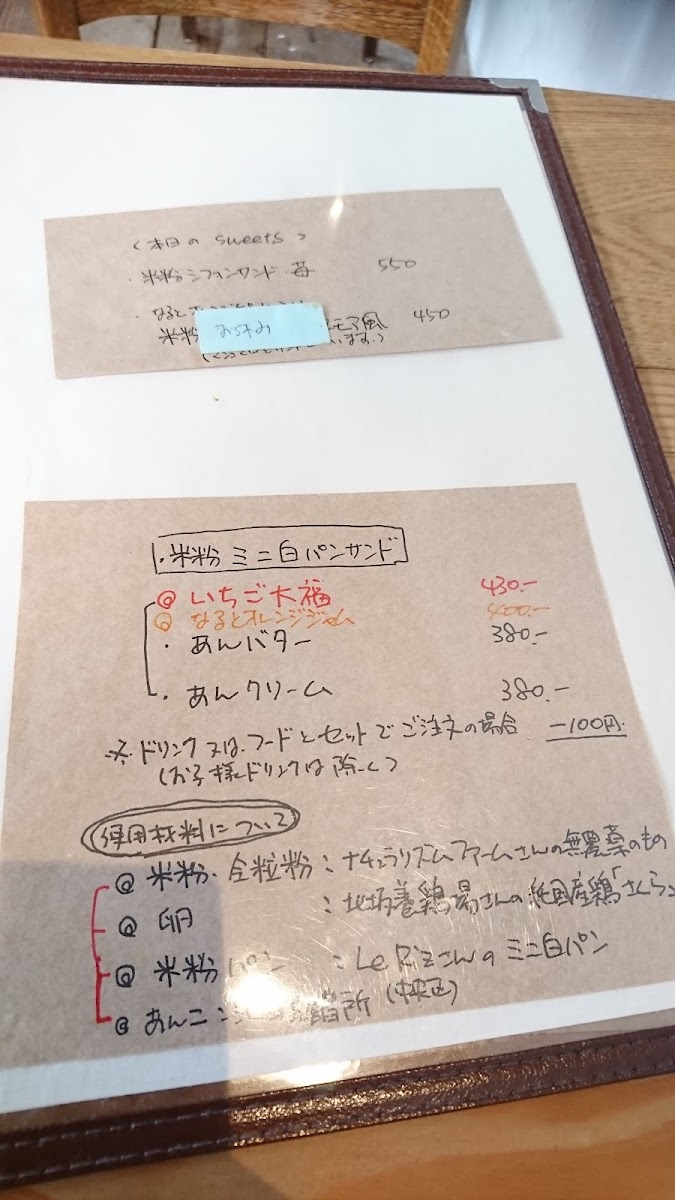 〈本日の sweets〉
・米粉シフォンサンド 苺 550
・なるとオレンジ 450
米粉 おやすみ モア風
います。)
・米粉 ミニ白パンサンド
@ いちご大福 430.-
@ なるとオレンジジャム 400.-
・ あんバター 380.-
・ あんクリーム 380.-
※ ドリンク又は、フードとセットでご注文の場合 -100円.
(お子様ドリンクは除く)
使用材料について
@ 米粉・全粒粉 : ナチュラリズムファームさんの無農薬のもの
@ 卵 : 北坂養鶏場さんの純国産鶏「さくら」
@ 米粉パン : Le Rizさんの ミニ白パン
@ あんこ : 製餡所 (中央区)